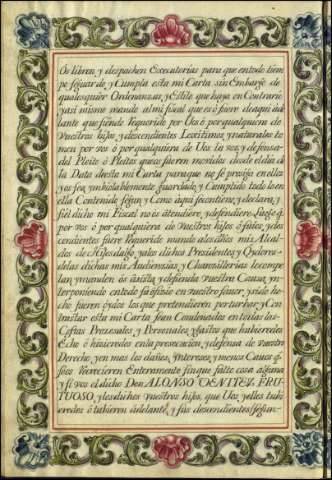 Os libren, y despachen Executorias para que entodo tiem
po seguarde, y Cumpla esta mi Carta sin Embargo de
qualesquier Ordenanzas, y Estilo que haya en Contrario
yasi mismo mando al mi fiscal que es ó fuere deaqui ade
lante que siendo Requerido por Uos ó por qualquiera de
Vuestros hijos, y descendientes Lexitimos, y naturales to
men por vos ó por qualquiera de Uos la voz, y defensa
del Pleito ó Pleitos queos fueren movidos desde el dia de
la Data desta mi Carta paraque no se prosiga en ellos
yos sea inbiolablemente guardado, y Cumplido todo lo en
ella Contenido segun, y Como aqui secontiene, y declara, y
siel dicho mi Fiscal no os atendiere, y defendiere Luego q.
por vos ó por qualquiera de Vuestros hijos ó hijas, y des
cendientes fuere Requerido mando alos dhos mis Alcal
des de Hijosdalgo, yalos dichos Presidentes y Oydores
delas dichas mis Audiencias, y Chancillerias lo compe
lan, y manden os asista, y defienda Vuestra Causa, yn
terponiendo entodo su oficio en Vuestro favor, y sinlo ha
cer fueren oydos los que pretendieren perturbar, y Con
trastar esta mi Carta sean Condenados en todas las
Costas Prozesales, y Personales, y gastos que hubieredes
Echo ó hicieredes enla prosecucion, y defensa de Vuestro
Derecho, yen mas los daños, ynterezes, y menos Causa q.
seos Recrecieren Enteramente sinque falte cosa alguna
y si vos el dicho Don ALONSO VENITEZ FRU
TUOSO, ylos dichos Vuestros hijos, que Uos yellos tubi
eredes ó tubieren adelante, y sus descendientes segun-